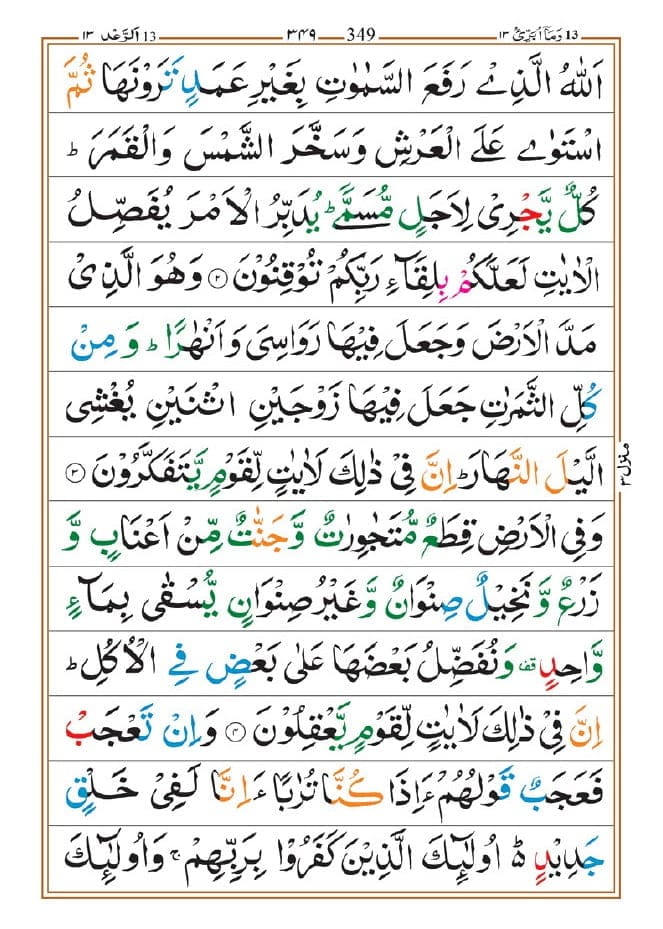 13 وَمَآ اُبَرِّئُ ١٣ 349 ٣٤٩ 13 اَلرَّعْد ١٣
اَللّٰهُ الَّذِیْ رَفَعَ السَّمٰوٰتِ بِغَیْرِ عَمَدٍ تَرَوْنَهَا ثُمَّ
اسْتَوٰی عَلَی الْعَرْشِ وَسَخَّرَ الشَّمْسَ وَالْقَمَرَ ؕ
كُلٌّ یَّجْرِیْ لِاَجَلٍ مُّسَمًّی ؕ یُدَبِّرُ الْاَمْرَ یُفَصِّلُ
الْاٰیٰتِ لَعَلَّكُمْ بِلِقَآءِ رَبِّكُمْ تُوْقِنُوْنَ ۝۲ وَهُوَ الَّذِیْ
مَدَّ الْاَرْضَ وَجَعَلَ فِیْهَا رَوَاسِیَ وَاَنْهٰرًا ؕ وَمِنْ
كُلِّ الثَّمَرٰتِ جَعَلَ فِیْهَا زَوْجَیْنِ اثْنَیْنِ یُغْشِی
الَّیْلَ النَّهَارَ ؕ اِنَّ فِیْ ذٰلِكَ لَاٰیٰتٍ لِّقَوْمٍ یَّتَفَكَّرُوْنَ ۝۳
وَفِی الْاَرْضِ قِطَعٌ مُّتَجٰوِرٰتٌ وَّجَنّٰتٌ مِّنْ اَعْنَابٍ وَّ
زَرْعٌ وَّنَخِیْلٌ صِنْوَانٌ وَّغَیْرُ صِنْوَانٍ یُّسْقٰی بِمَآءٍ
وَّاحِدٍ قف وَنُفَضِّلُ بَعْضَهَا عَلٰی بَعْضٍ فِی الْاُكُلِ ؕ
اِنَّ فِیْ ذٰلِكَ لَاٰیٰتٍ لِّقَوْمٍ یَّعْقِلُوْنَ ۝۴ وَاِنْ تَعْجَبْ
فَعَجَبٌ قَوْلُهُمْ ءَاِذَا كُنَّا تُرٰبًا ءَاِنَّا لَفِیْ خَلْقٍ
جَدِیْدٍ ؕ۬ اُولٰٓئِكَ الَّذِیْنَ كَفَرُوْا بِرَبِّهِمْ ۚ وَاُولٰٓئِكَ
منزل ۳